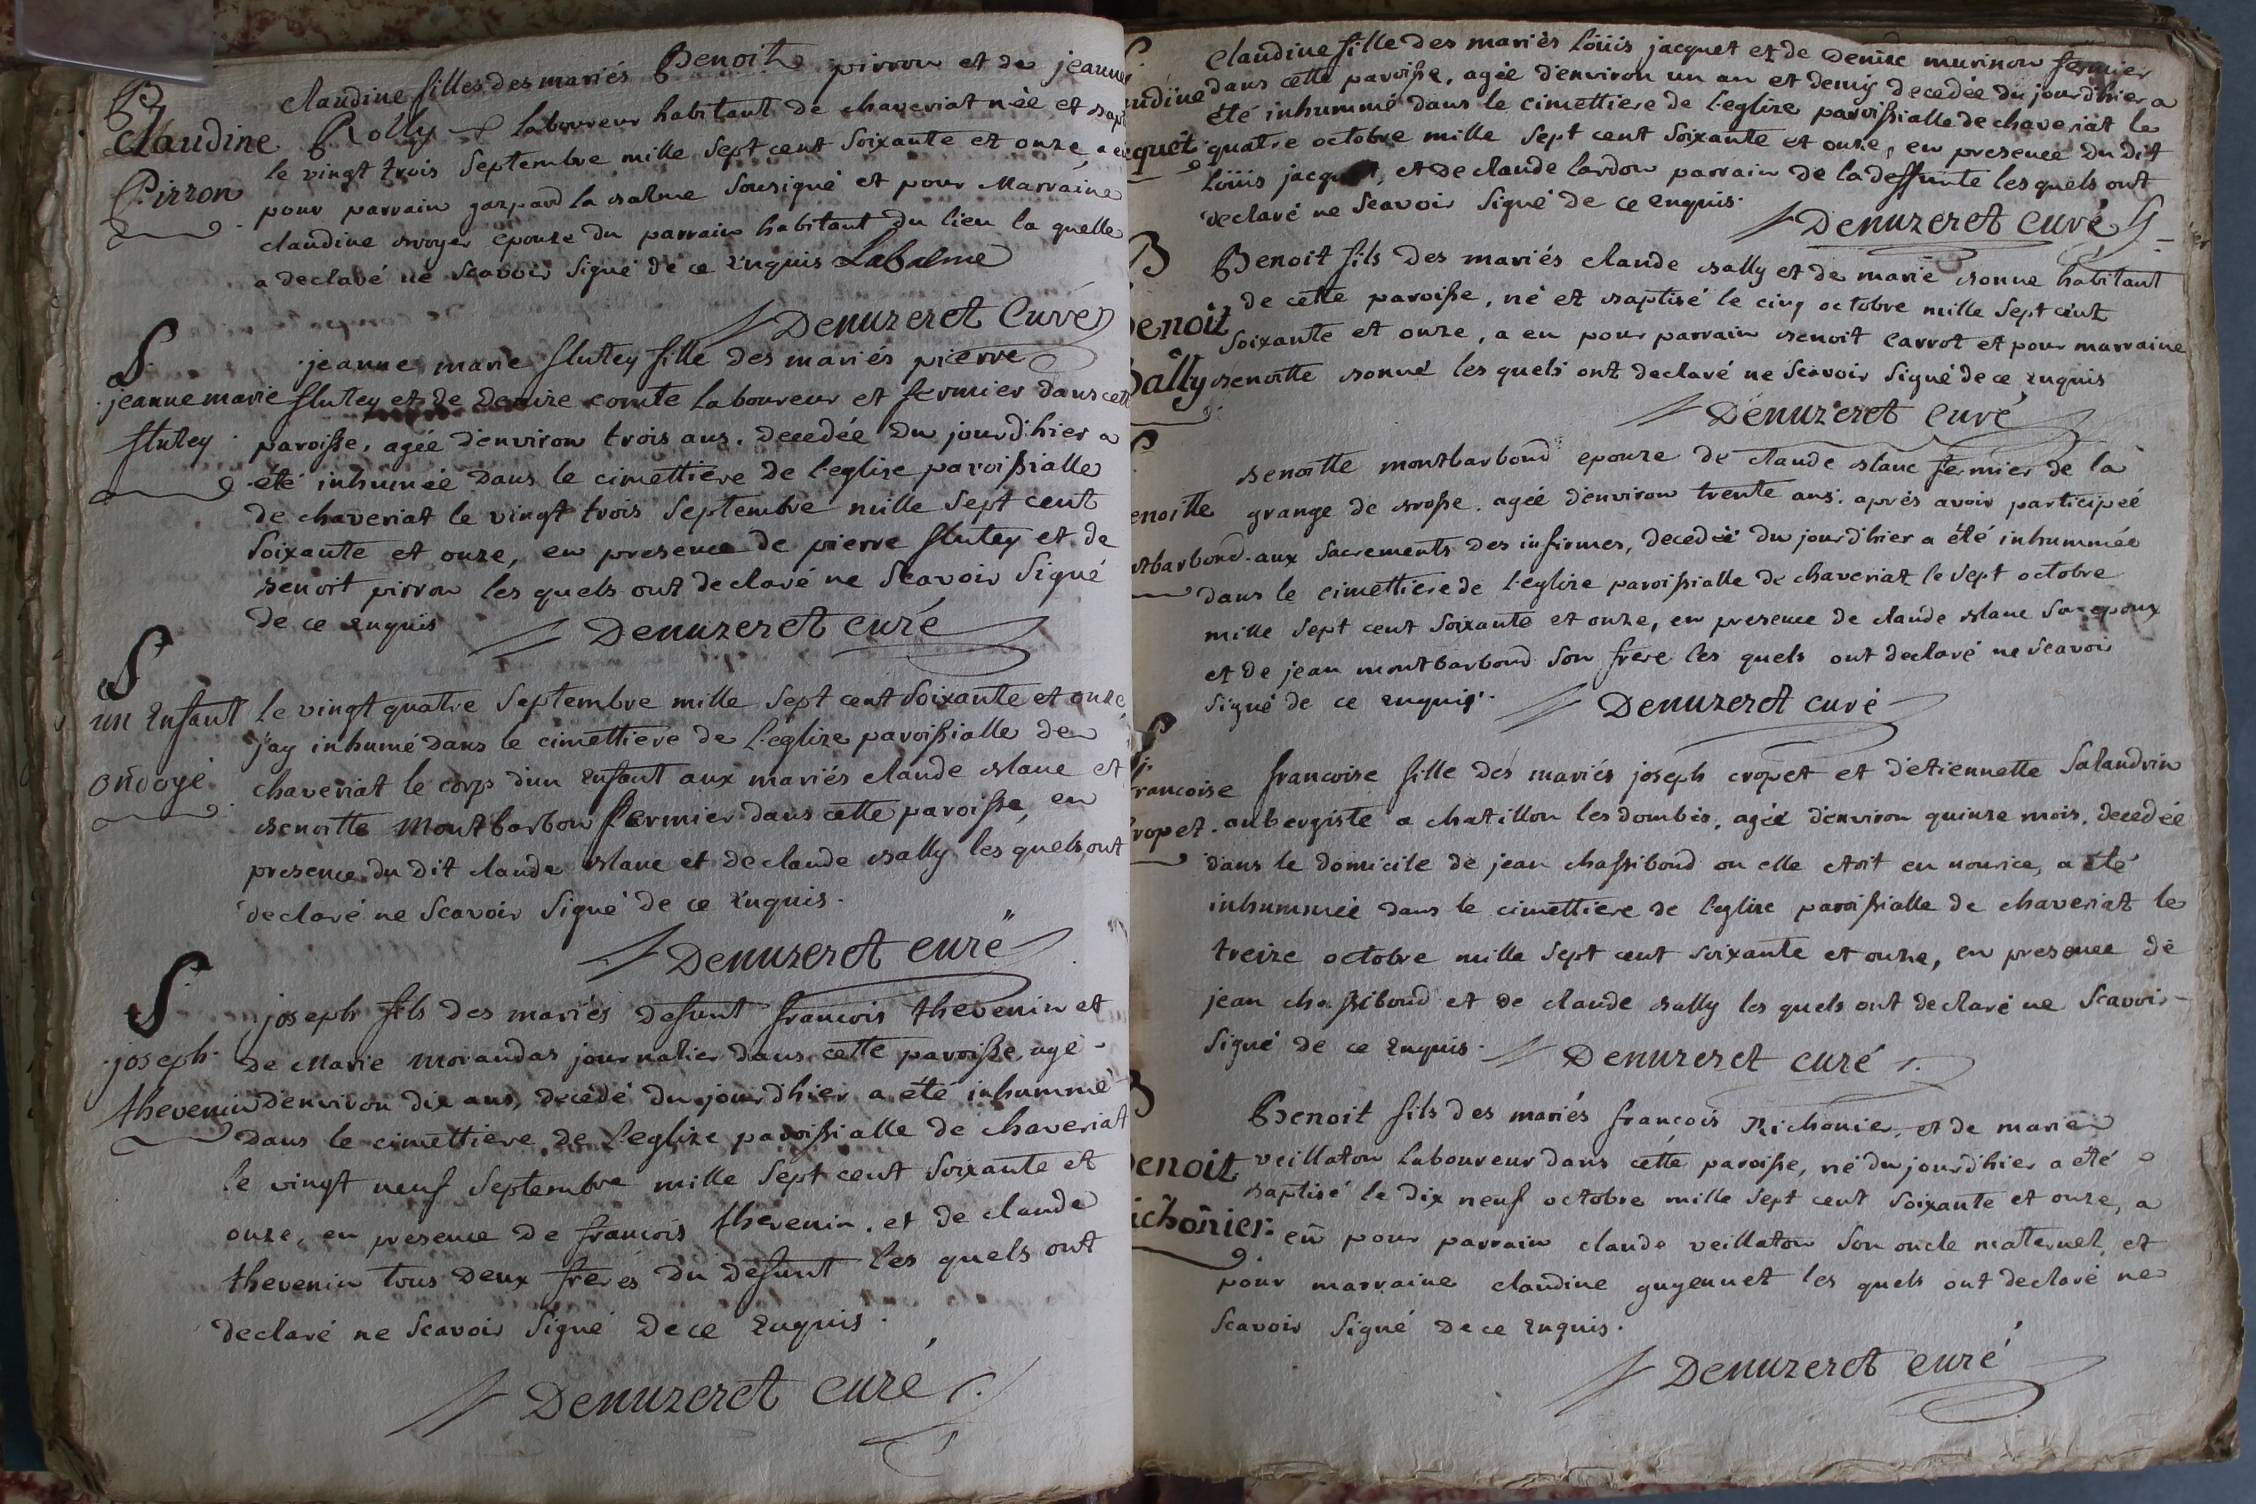 B
Claudine
Pirron
claudine filles des mariés Benoit pirron et de jeanne
Rolly laboureur habitant de chaveriat née et bapt
le vingt trois Septembre mille Sept cent Soixante et onze a eu
pour parrain gaspard la balme Sousigné et pour Marraine
claudine broyer epouze du parrain habitant du lieu la quelle
a declaré ne Scavoir Signé de ce Enquis Labalme
Denuzeret Curé
S
jeanne marie
flutey
jeanne marie flutey fille des mariés pierre
flutey et de Denize comte laboureur et fermier dans cett
paroisse, agée d'environ trois ans. decedée du jourd'hier a
été inhumée dans le cimettiere de l'eglize paroissialle
de chaveriat le vingt trois Septembre mille Sept cent
Soixante et onze, en presence de pierre flutey et de
benoit pirron les quels ont declaré ne Scavoir Signé
de ce enquis Denuzeret curé
S
un Enfant
ondoyé
le vingt quatre Septembre mille Sept cent Soixante et onze
j'ay inhumé dans le cimettiere de l'eglize paroissialle de
chaveriat le corps d'un Enfant aux mariés claude blanc et
benoitte Montbarbon fermier dans cette paroisse, en
presence du dit claude blanc et de claude bally les quels ont
declaré ne Scavoir Signé de ce Enquis.
Denuzeret curé
S
joseph
thevenin
joseph fils des mariés defunt francois thevenin et
de Marie Morandas journalier dans cette paroisse, agé
d'environ dix ans, decédé du jourd'hier a été inhummé
dans le cimettiere de l'eglize paroissialle de chaveriat
le vingt neuf Septembre mille Sept cent Soixante et
onze, en presence de francois thevenin. et de claude
thevenin tous deux freres du defunt les quels ont
declaré ne Scavoir Signé de ce Enquis.
Denuzeret curé
S.
udine
cquet
claudine fille des mariés loüis jacquet et de Denize murinon fermier
dans cette paroisse, agée d'environ un an et demy decedée du jourd'hier a
été inhummé dans le cimettiere de l'eglize paroissialle de chaveriat le
quatre octobre mille Sept cent Soixante et onze, en presence du dit
loüis jacquet, et de claude lardon parrain de la deffunte les quels ont
declaré ne Scavoir Signé de ce enquis.
Denuzeret curé
B
enoit
Bally
Benoit fils des mariés claude bally et de marie bonne habitant
de cette paroisse, né et baptisé le cinq octobre mille Sept cent
Soixante et onze, a eu pour parrain benoit carrot et pour marraine
benoitte bonne les quels ont declaré ne Scavoir Signé de ce Enquis
Denuzeret curé
S
enoitte
ntbarbond
benoitte montbarbond epouze de claude blanc fermier de la
grange de brosse. agée d'environ trente ans. aprés avoir participeé
aux Sacrements des infirmes, decedeé du jourd'hier a été inhummée
dans le cimettiere de l'eglize paroissialle de chaveriat le Sept octobre
mille Sept cent Soixante et onze, en presence de claude blanc Son epoux
et de jean montbarbond Son frere les quels ont declaré ne Scavoir
Signé de ce enquis. Denuzeret curé
S
francoise
cropet.
francoise fille des mariés joseph cropet et d'etiennette Salandrin
aubergiste a chatillon les dombés, agée d'environ quinze mois. decedée
dans le domicile de jean chassibond ou elle etoit en nourice, a été
inhummée dans le cimettiere de l'eglize paroissialle de chaveriat le
treize octobre mille Sept cent Soixante et onze, en presence de
jean chassibond et de claude bally les quels ont declaré ne Scavoir
Signé de ce Enquis. Denuzeret curé
B
Benoit
ichonier
Benoit fils des mariés francois Richonier, et de marie
veillaton laboureur dans cette paroisse, né du jourd'hier a été
baptisé le dix neuf octobre mille Sept cent Soixante et onze, a
eu pour parrain claude veillaton Son oncle maternel, et
pour marraine claudine guyennet les quels ont declaré ne
Scavoir Signé de ce Enquis.
Denuzeret curé